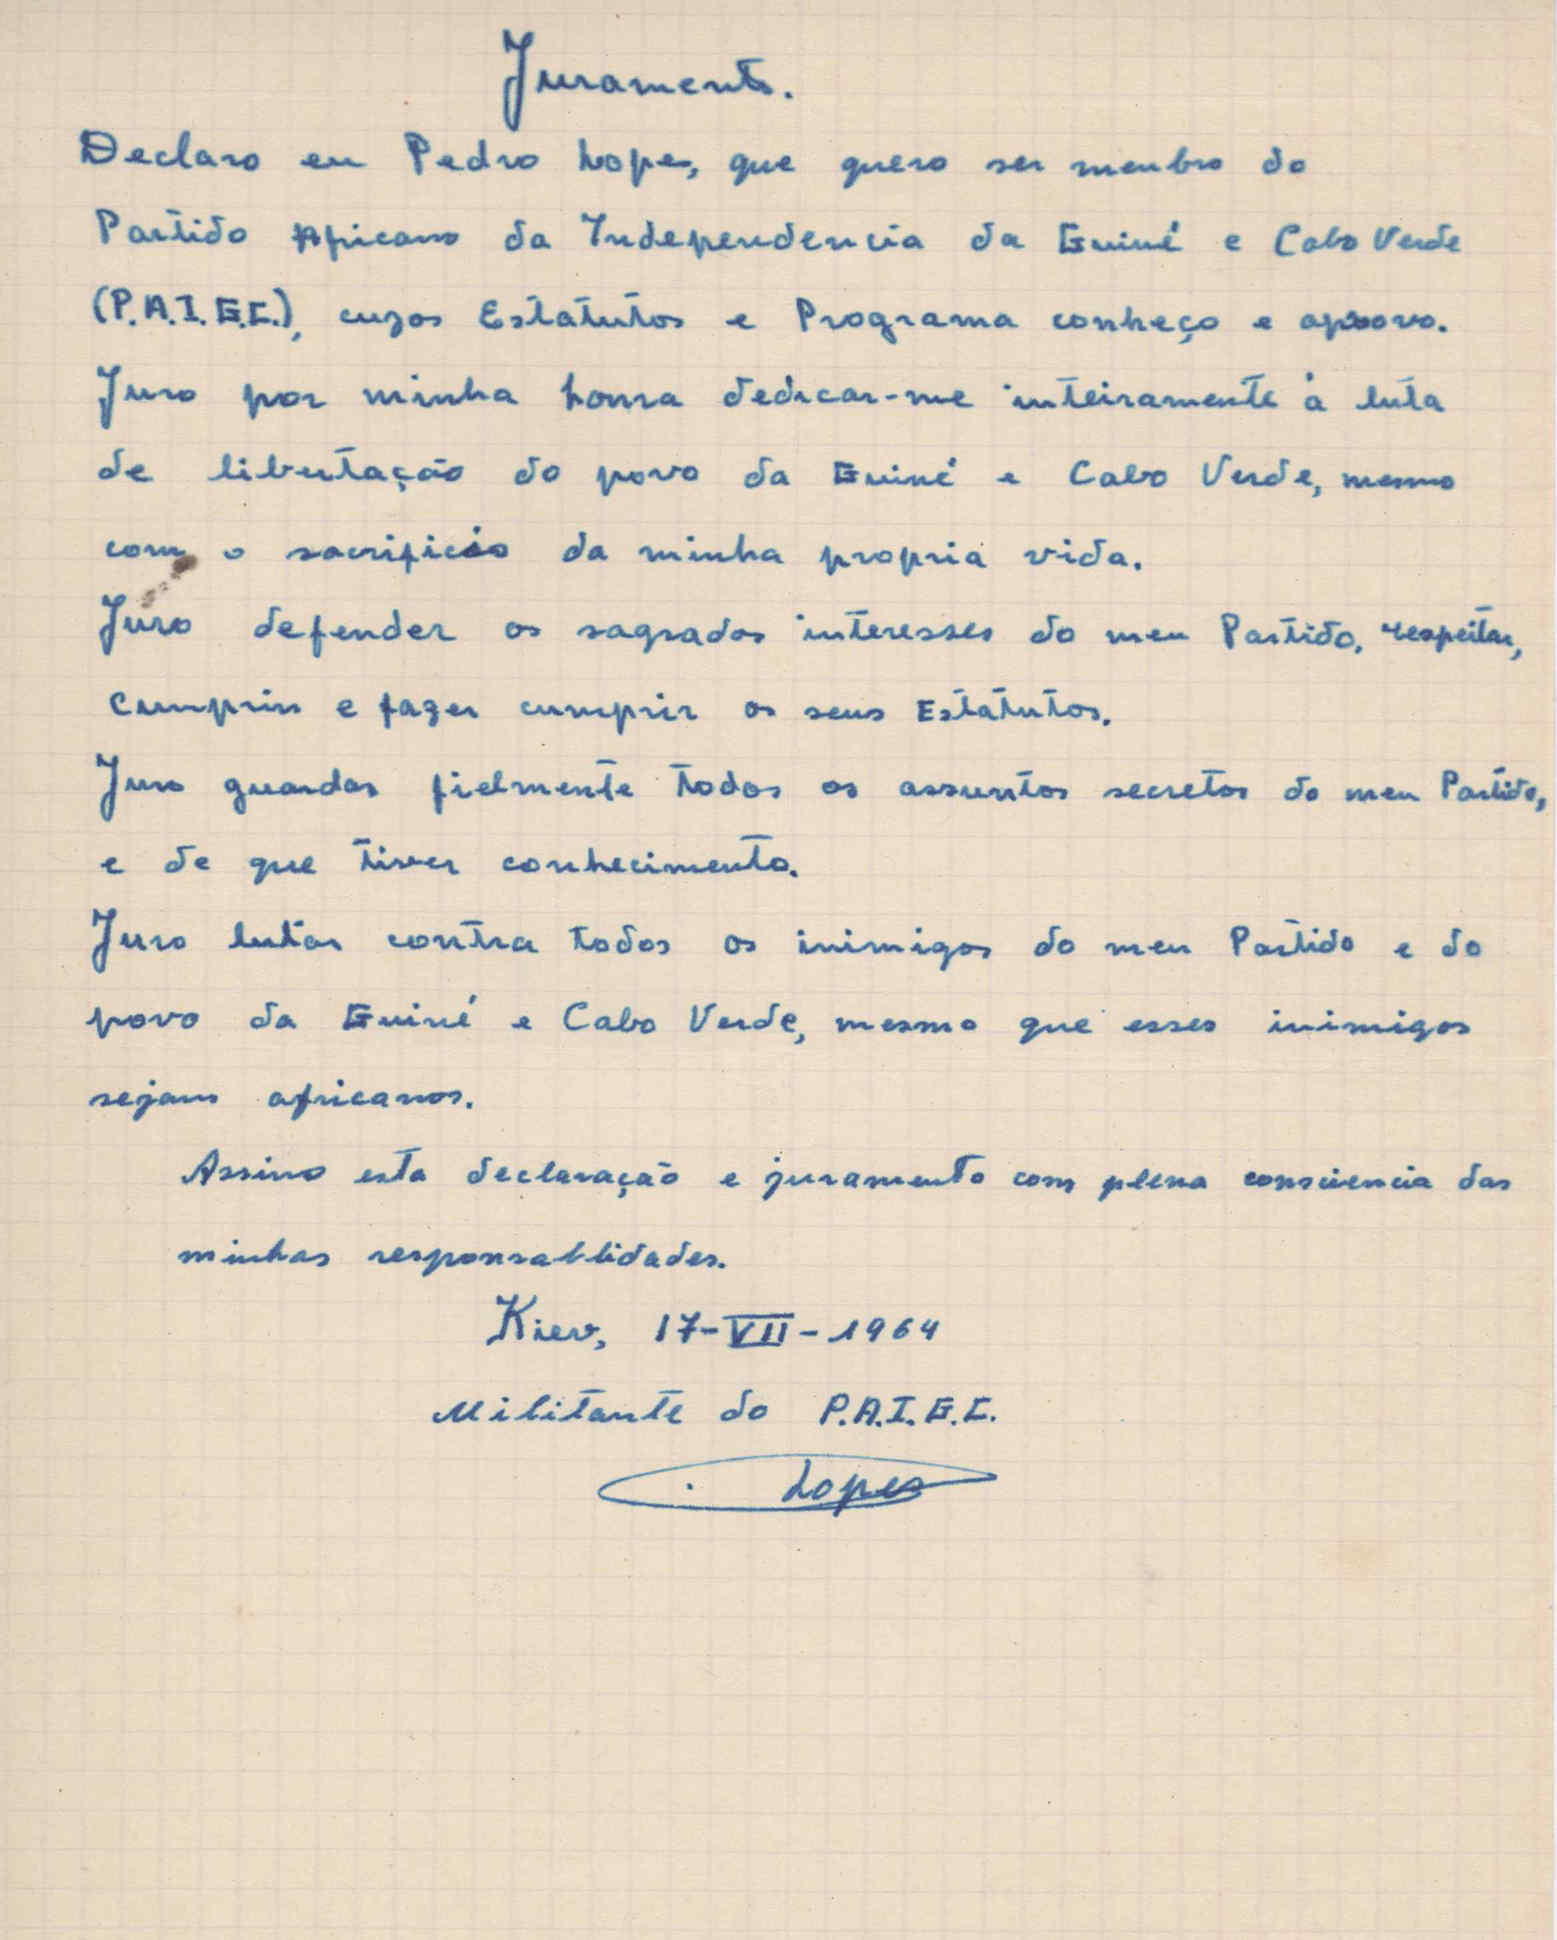 Juramento.
Declaro eu Pedro Lopes, que quero ser menbro do
Partido Africano da Independencia da Guiné e Cabo Verde
(P.A.I.G.C.), cujos Estatutos e Programa conheço e aprovo.
Juro por minha honra dedicar-me inteiramente à luta
de libertação do povo da Guiné e Cabo Verde, mesmo
com o sacrificio da minha propria vida.
Juro defender os sagrados interesses do meu Partido, respeitar,
cumprir e fazer cumprir os seus Estatutos.
Juro guardar fielmente todos os assuntos secretos do meu Partido,
e de que tiver conhecimento.
Juro lutar contra todos os inimigos do meu Partido e do
povo da Guiné e Cabo Verde, mesmo que esses inimigos
sejam africanos.
Assino esta declaração e juramento com plena consciencia das
minhas responsablidades.
Kiev, 17-VII-1964
Militante do P.A.I.G.C.
Lopes